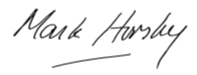 Mark Horsley